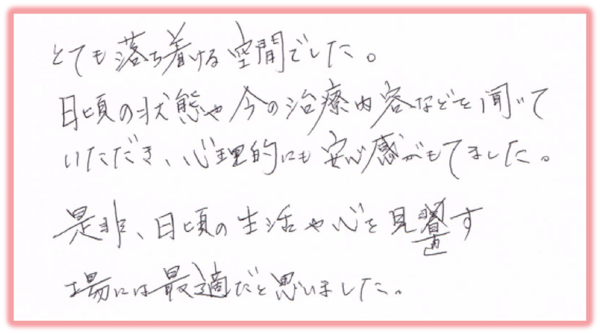 とても落ち着ける空間でした。
日頃の状態や今の治療内容などを聞いて
いただき、心理的にも安心感がもてました。
是非、日頃の生活や心を見直す
場には最適だと思いました。